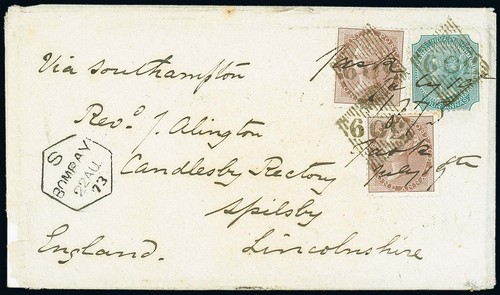 Via Southampton
Revd. J. Alington
Candlesby Rectory
Spilsby
England. Lincolnshire
S
BOMBAY
22 AU
73